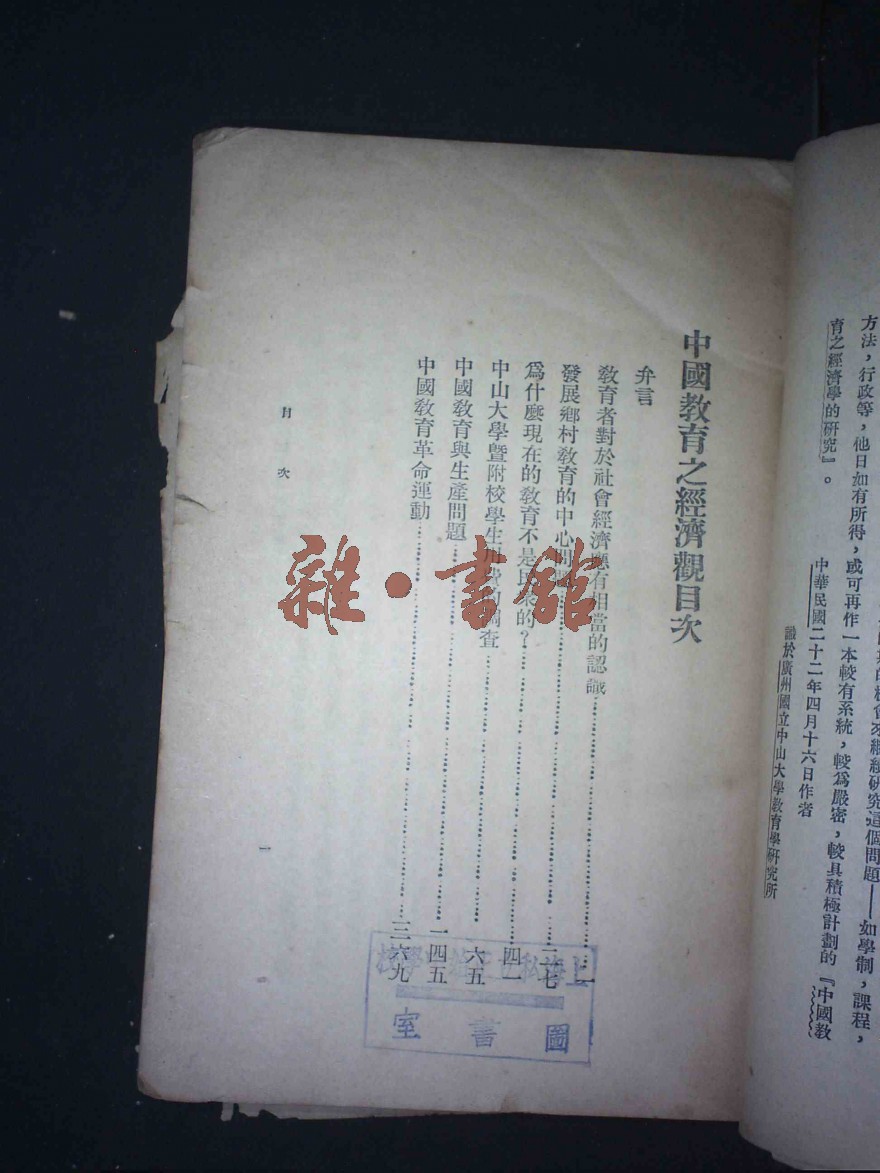 方法，行政等，他日如有所得，或可再作一本較有系統，較爲嚴密，較具積極計劃的『中國教
育之經濟學的研究』。
中華民國二十二年四月十六日作者
識於廣州國立中山大學教育學研究所
中國教育之經濟觀目次
弁言
教育者對於社會經濟應有相當的認識……一
發展鄉村教育的中心問題……二七
爲什麼現在的教育不是民衆的？……四一
中山大學暨附校學生用費的調查……六五
中國教育與生產問題……一四五
中國教育革命運動……三六九
目次
一
雜·書館
圖書室